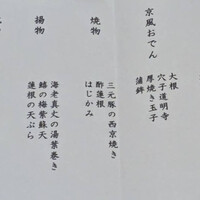 京風おでん
大根
穴子道明寺
厚焼き玉子
蒲鉾
焼物
三元豚の西京焼き
酢蓮根
はじかみ
揚物
海老真丈の湯葉巻き
鱚の梅紫蘇天
蓮根の天ぷら